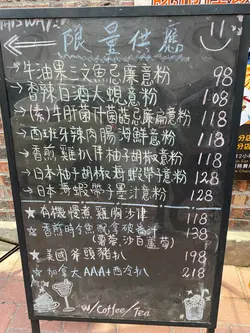 THIS WAY!
限量供應
牛油果三文魚忌廉意粉 98
香辣白酒大蜆意粉 108
(素)牛肝菌什菌忌廉扁意粉 118
西班牙辣肉腸海鮮意粉 118
香煎雞扒伴柚子胡椒意粉 118
日本柚子胡椒海蝦帶子意粉 128
日本海蝦帶子墨汁意粉 128
★有機慢煮雞胸沙律 118
★香煎時令魚配拿破崙汁 138
★美國斧頭豬扒 158
★加拿大AAA+西冷扒 218
w/Coffee/Tea